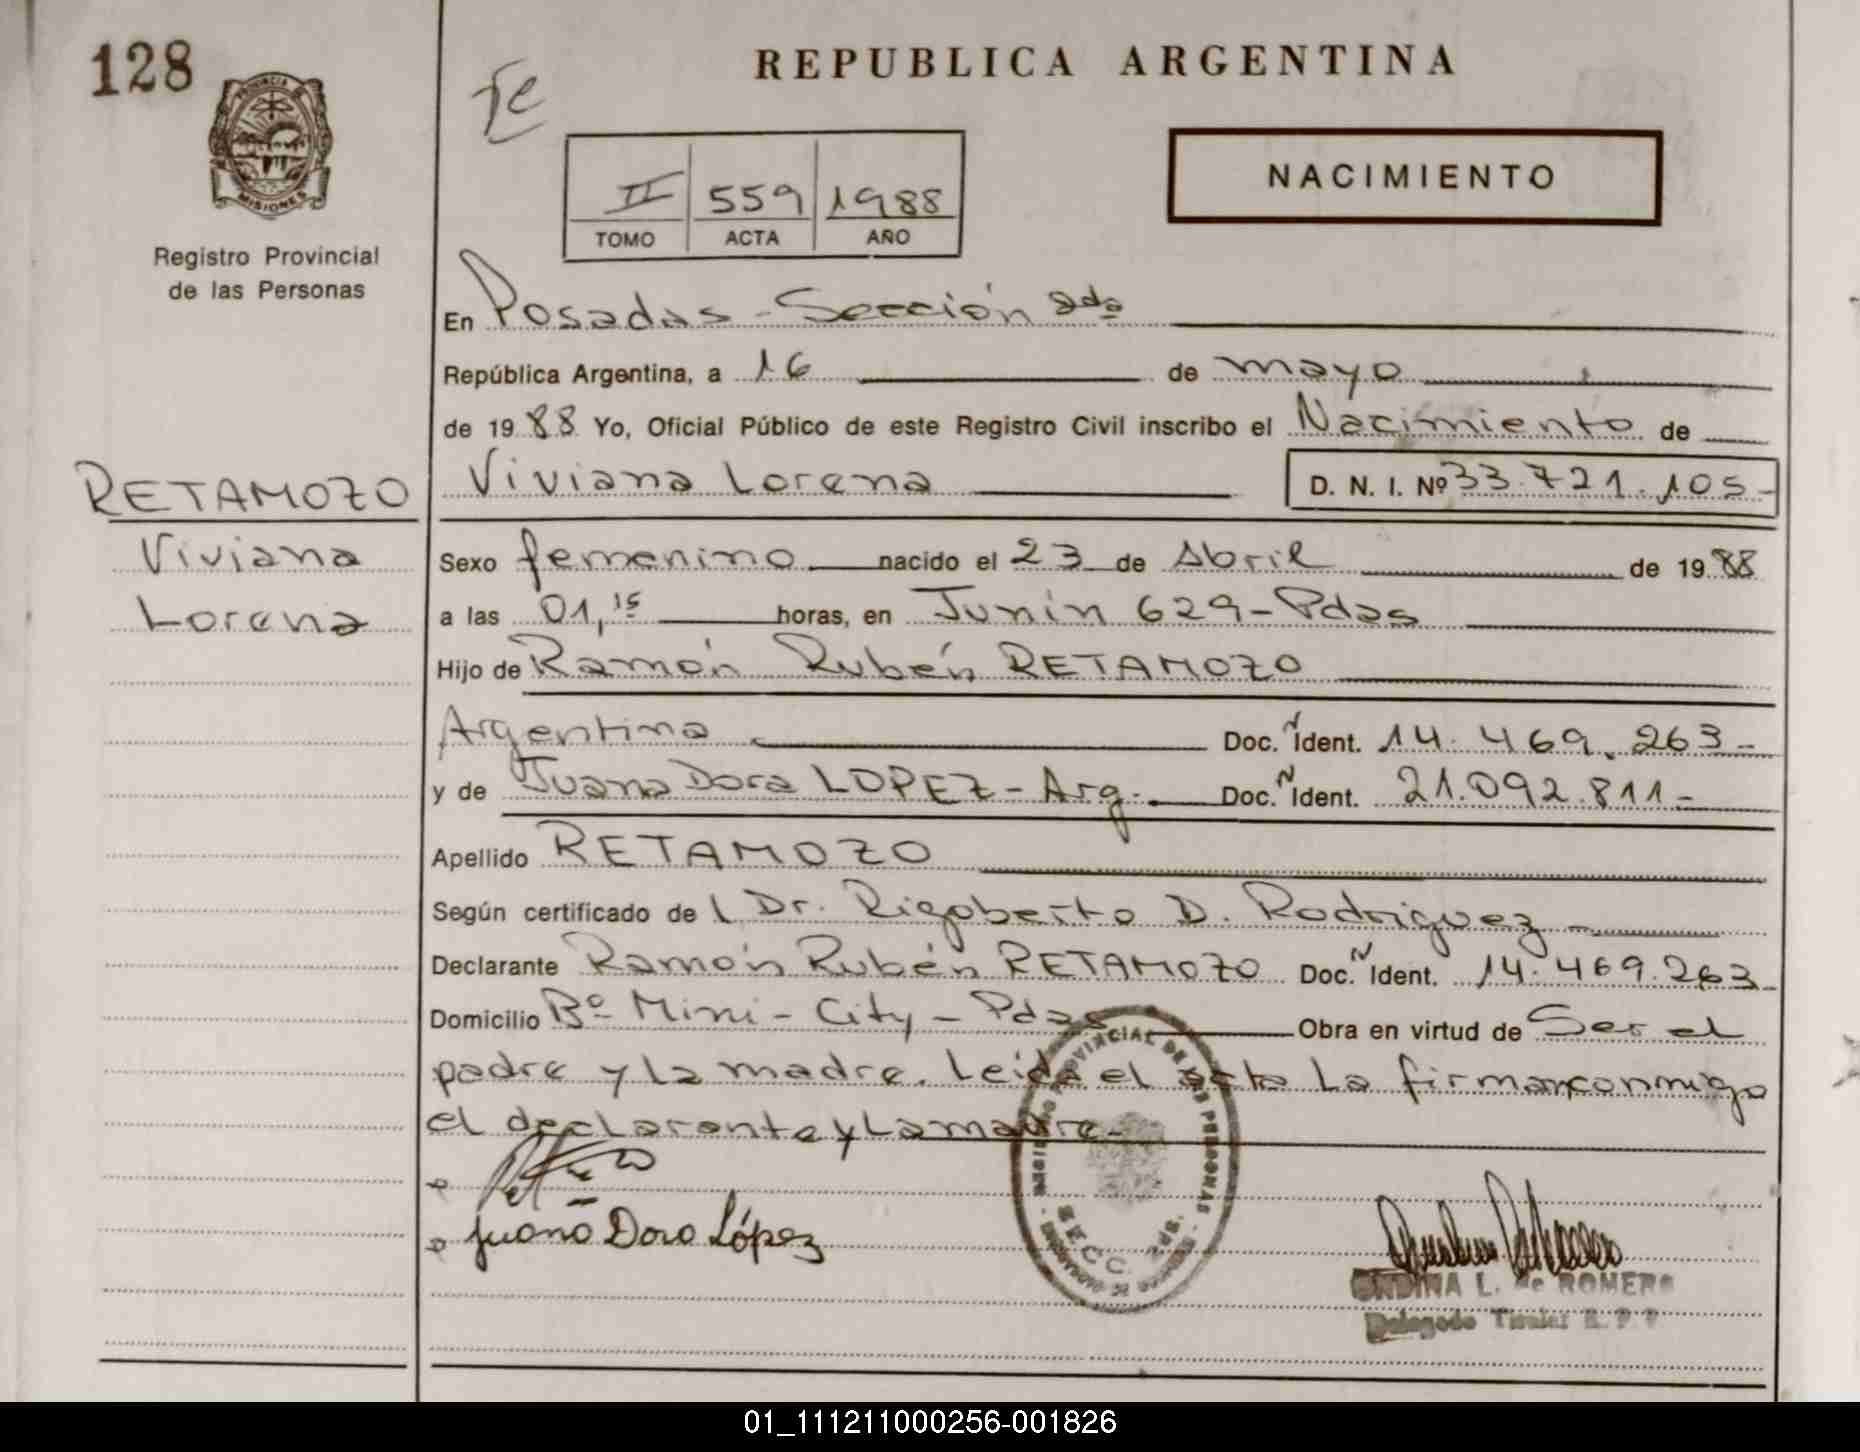 128
REPUBLICA ARGENTINA
PROVINCIA DE
MISIONES
Registro Provincial
de las Personas
II 559 1988
TOMO ACTA AÑO
NACIMIENTO
En Posadas - Sección 2da
República Argentina, a 16 de mayo
de 1988 Yo, Oficial Público de este Registro Civil inscribo el Nacimiento de
RETAMOZO
Viviana
Lorena
Viviana Lorena D. N. I. Nº 33.721.105-
Sexo femenino nacido el 23 de Abril de 1988
a las 01,15 horas, en Junín 629-Pdas
Hijo de Ramón Rubén RETAMOZO
Argentina Doc. Ñ Ident. 14.469.263-
y de Juana Dora LOPEZ - Arg. Doc. Ñ Ident. 21.092.811-
Apellido RETAMOZO
Según certificado de l Dr. Rigoberto D. Rodriguez
Declarante Ramón Rubén RETAMOZO Doc. Ñ Ident. 14.469.263-
Domicilio Bº Mini - City - Pdas Obra en virtud de Ser el
padre y la madre. Leida el acta La firman conmigo
el declarante y La madre-
Juana Dora López
PROVINCIAL DE LAS PERSONAS
SECC. 2da.
ONDINA L. de ROMERO
Delegado Titular R. P. P.
01_111211000256-001826